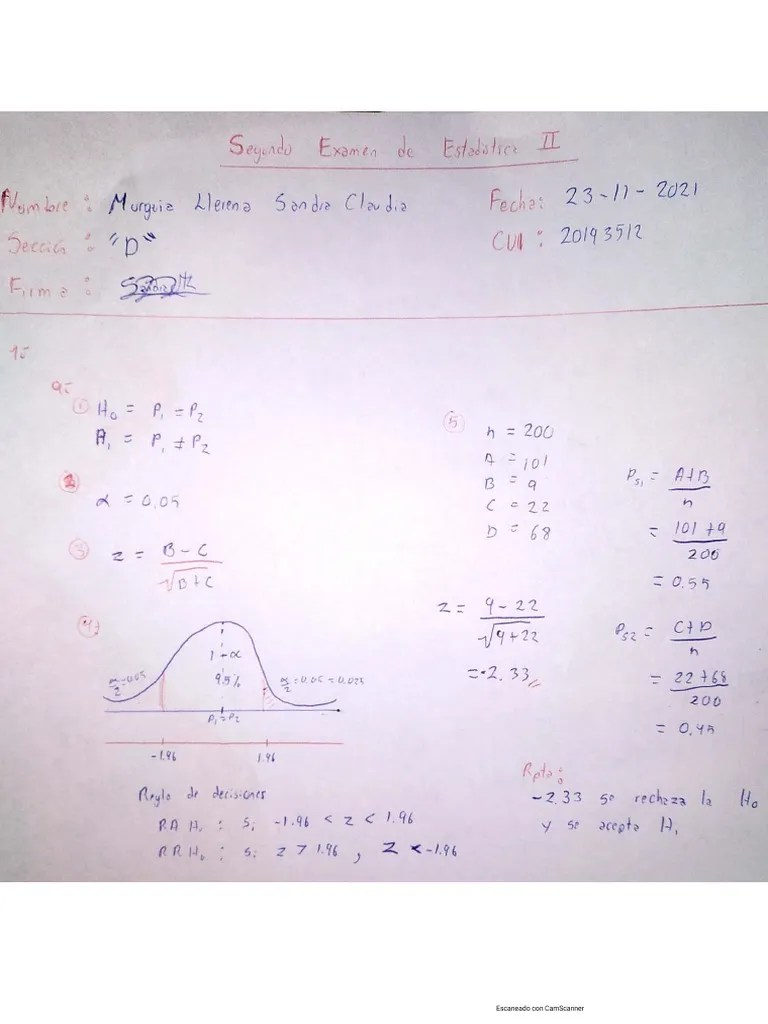 Segundo Examen de Estadística II
Nombre : Murguia Llerena Sandra Claudia
Fecha: 23-11-2021
Sección : "D"
CUI : 20193512
Firma :
1.-
a.-
① H₀ = P₁ = P₂
A₁ = P₁ ≠ P₂
② α = 0,05
③ z = B - C / √B+C
④
1-α
95%
α/2 = 0.05
α/2 = 0.05 = 0.025
P₁ = P₂
-1.96 1.96
Regla de decisiones
R.A H₀ : Si -1.96 < z < 1.96
R.R H₀ : Si z > 1.96 , z < -1.96
⑤ n = 200
A = 101
B = 9
C = 22
D = 68
z = 9 - 22 / √9+22
= -2.33
Ps₁ = A+B / n
= 101 + 9 / 200
= 0.55
Ps2 = C+D / n
= 22 + 68 / 200
= 0,45
Rpta:
-2.33 se rechaza la H₀
y se acepta H₁
Escaneado con CamScanner